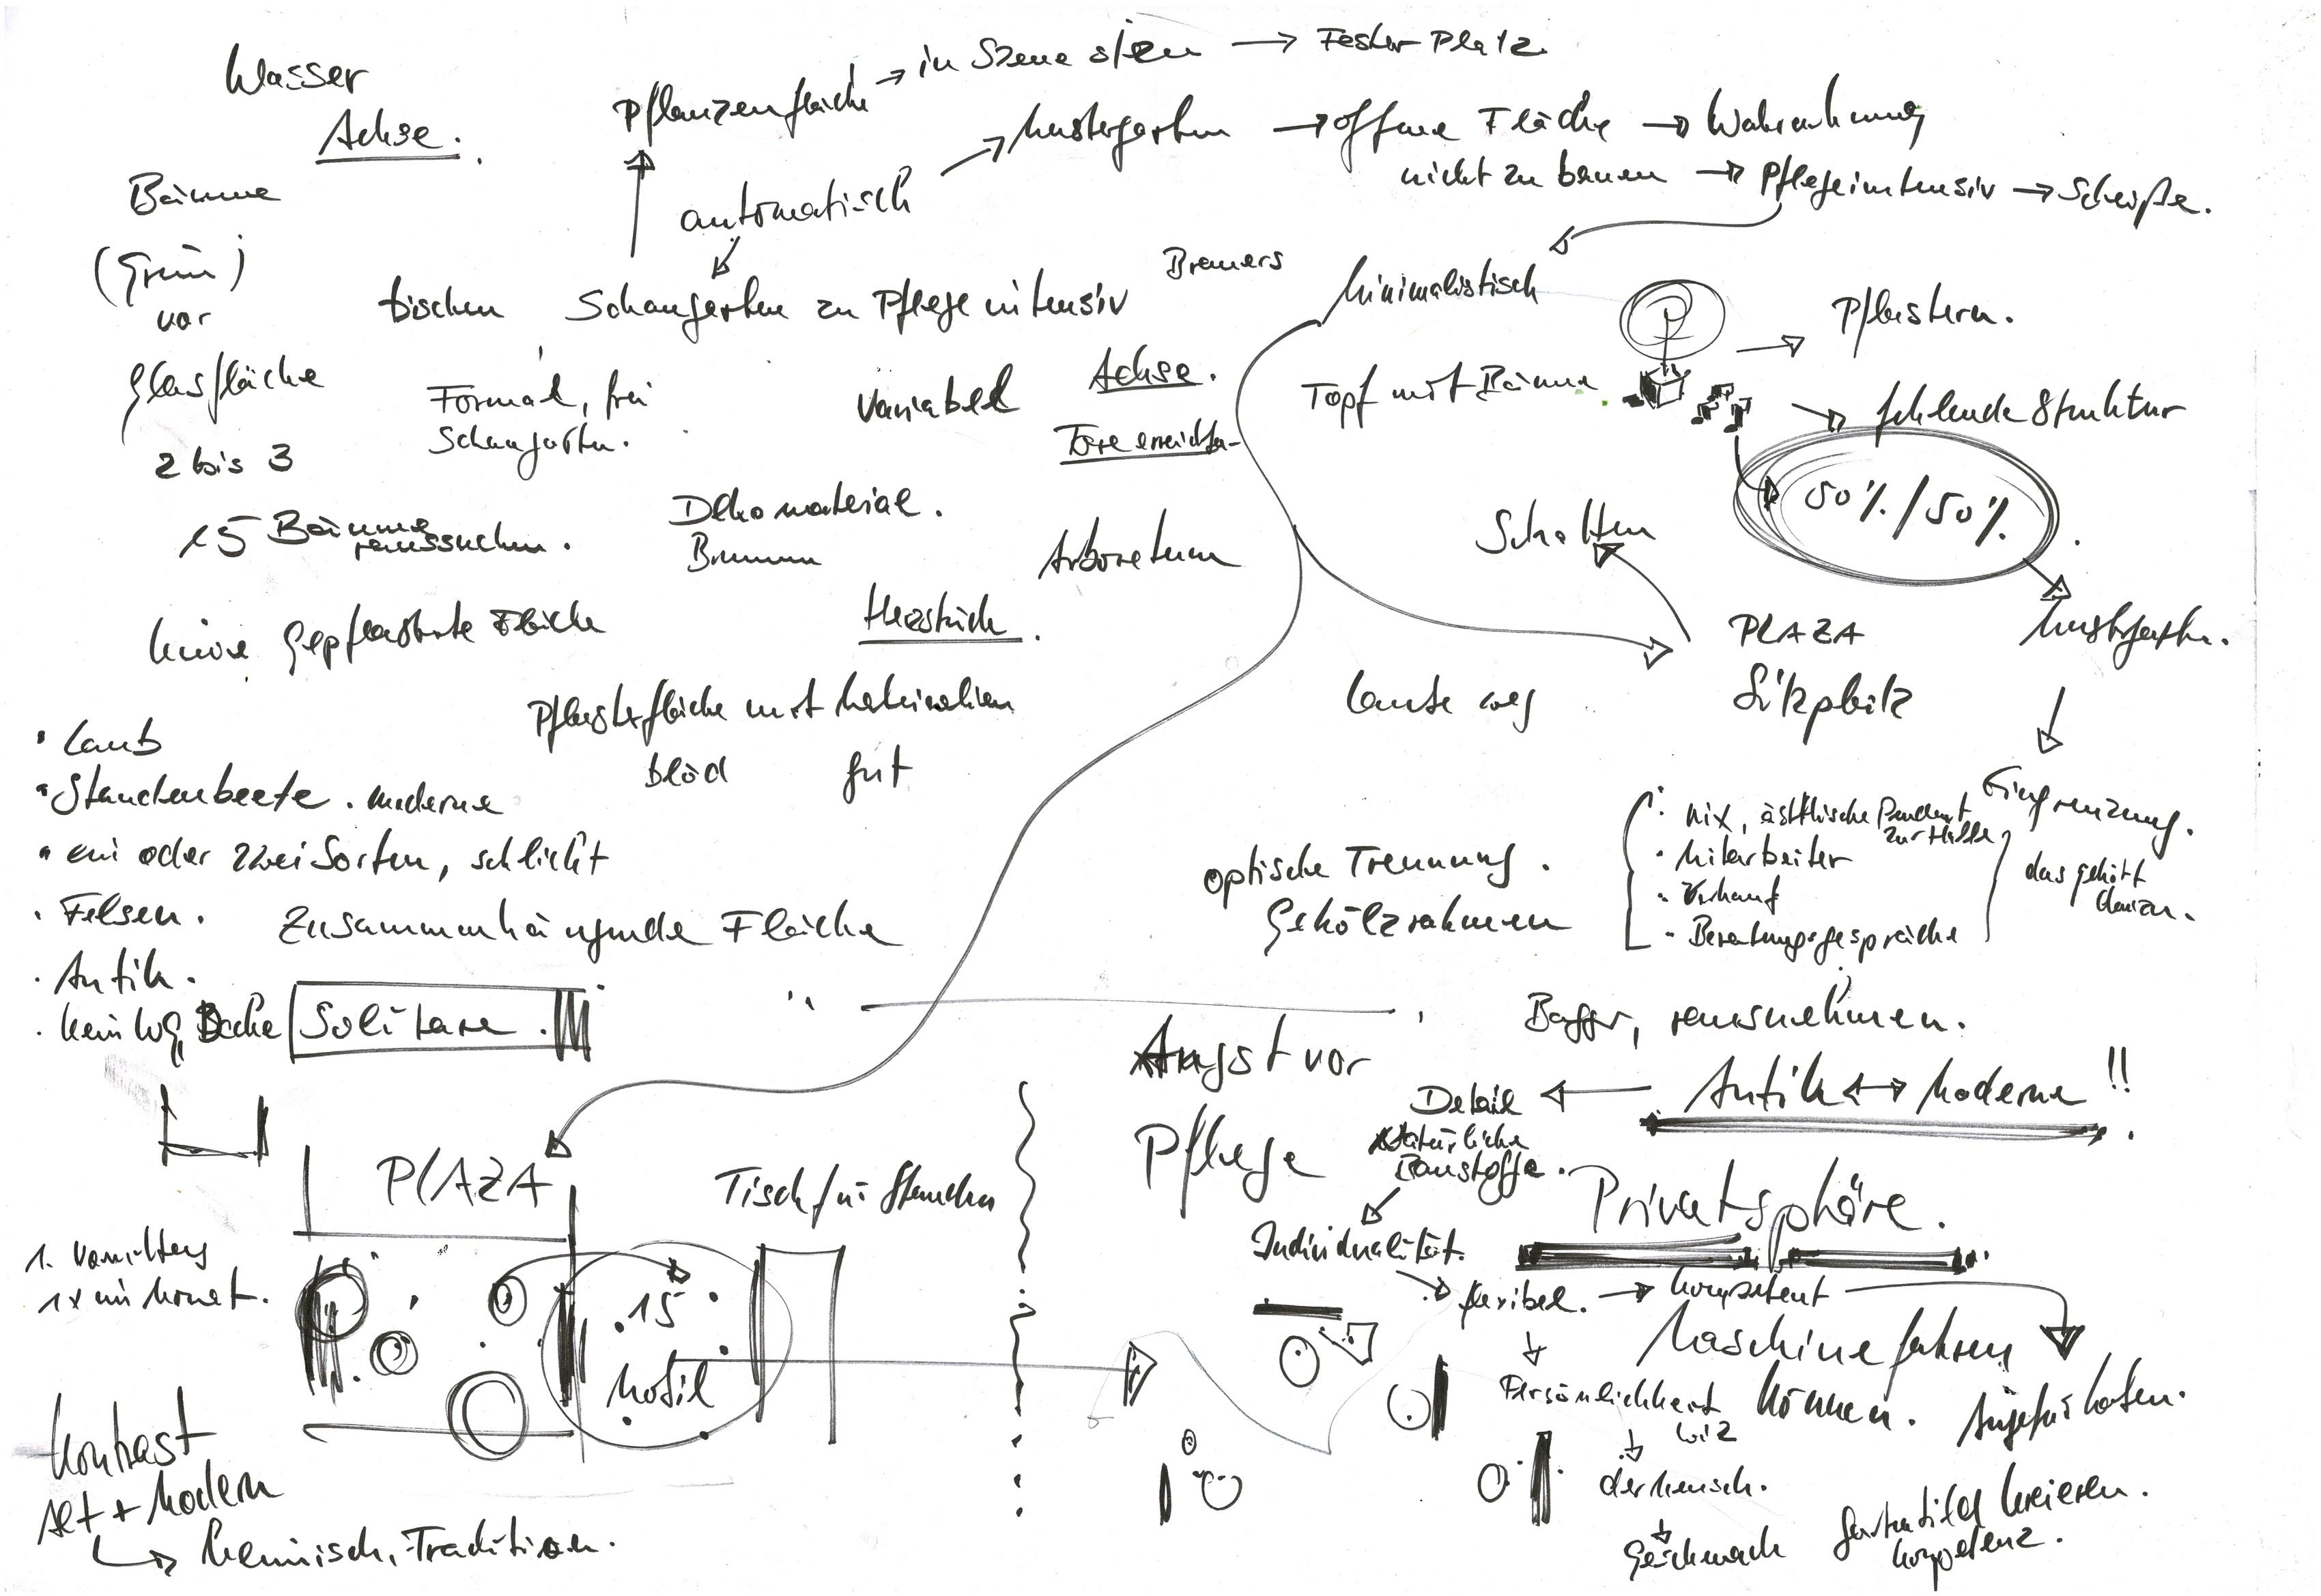 Wasser
Achse.
Bäume
(Grün)
vor
Glasfläche
2 bis 3
15 Bäume
raussuchen.
keine gepflasterte Fläche
Pflanzenfläche → in Szene → Fester Platz
automatisch → Mustergarten → offene Fläche → Wahrnehmung
nicht zu bauen → Pflegeintensiv → Scheiße.
tischen Schaugarten zu Pflegeintensiv
Bremers
Minimalistisch
Formal, frei
Schaugarten.
Variabel
Achse.
Tore
Dekomaterial.
Brunnen
Arboretum
Herzstück.
Pflasterfläche mit Materialien
blöd gut
Topf mit Bäume
Pflastern.
fehlende Struktur
50% / 50%
Schatten
Mustergarten.
PLAZA
Sitzplätz
Leute weg
Eingrenzung.
• Laub
• Staudenbeete. moderne
• ein oder zwei Sorten, schlicht
• Felsen.
Zusammenhängende Fläche
• Antik.
• kein
Solitäre.
optische Trennung.
Gehölzrahmen
• nix, ästhtische
zur Halle
• Mitarbeiter
• Verkauf
• Beratungsgespräche
das gehört
dazu.
Bagger, rausnehmen.
Angst vor
Pflege
Antik ↔ Moderne !!
Detail
Natürliche
Baustoffe.
Privatsphäre.
Individualität.
flexibel. → kompetent
PLAZA
Tisch für Stauden
1x im Monat.
15
Mobil
Maschine fahren
können.
Persönlichkeit
der Mensch.
Geschmack
Kreieren.
Kompetenz.
Kontrast
Alt + Modern
Heimisch, Tradition.